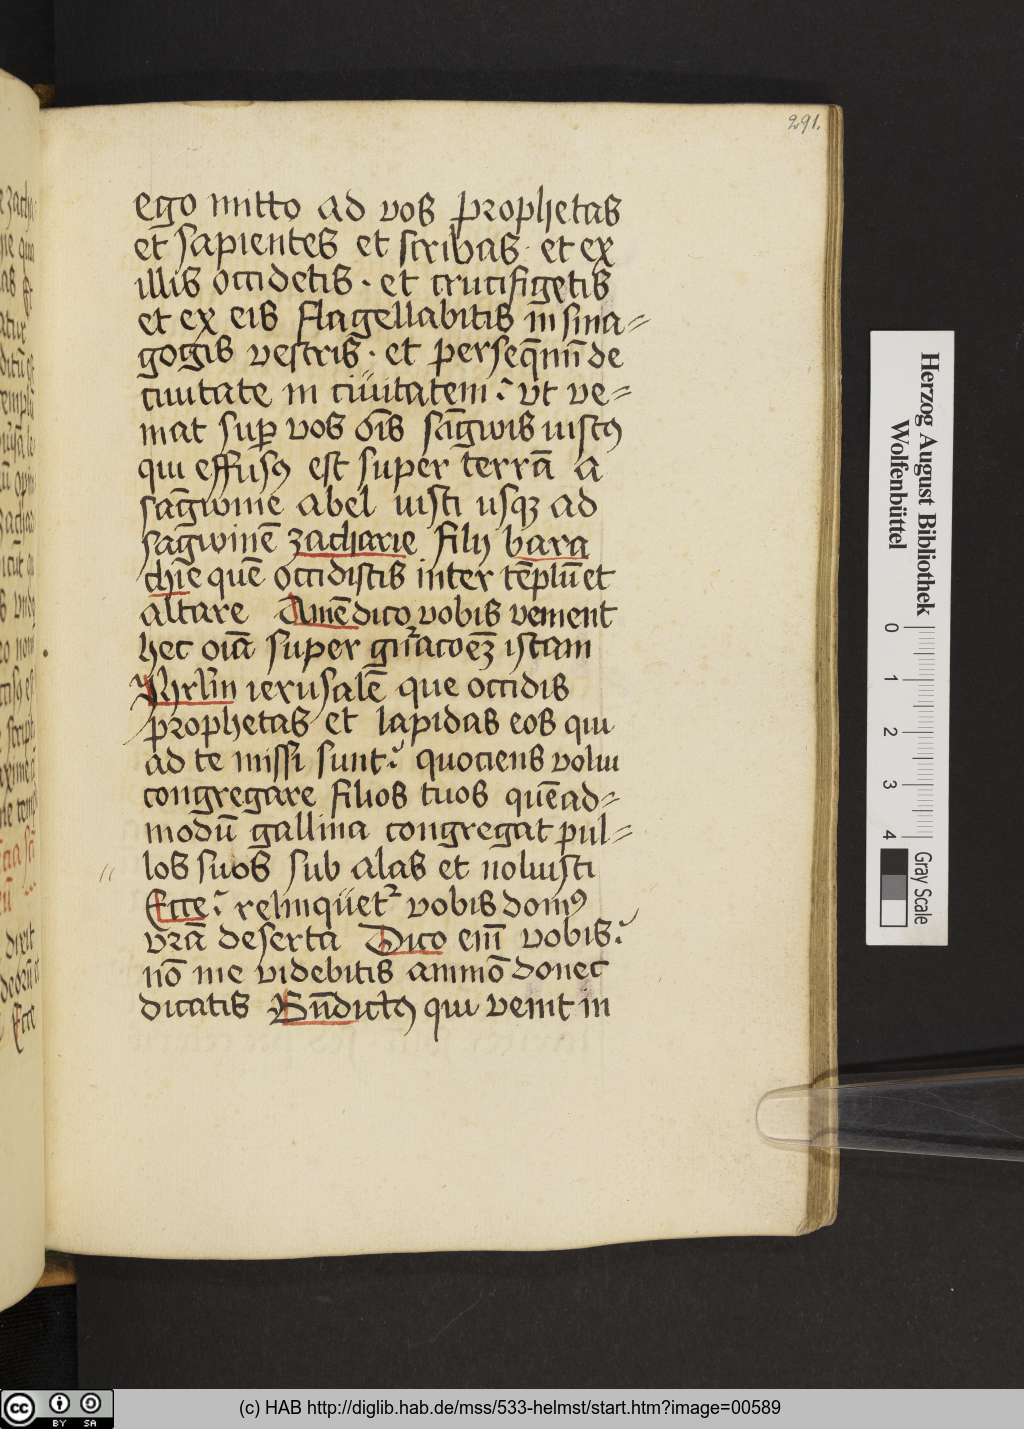 291.
ego mitto ad vos prophetas
et sapientes et scribas · et ex
illis occidetis · et crucifigetis
et ex eis flagellabitis in sina=
gogis vestris · et perseq̄mī de
civitate in civitatem : ut ve=
niat suꝑ vos oīs sāgwis iustꝯ
qui effusꝯ est super terrā a
sāgwine abel iusti usqꝫ ad
sāgwinē zacharie filij bara
chie quē occidistis inter tēplū et
altare Amē dico vobis venient
hec oīa super gn̄acoēꝫ istam
Jhrlm̄ ierusalē que occidis
prophetas et lapidas eos qui
ad te missi sunt : quociens volui
congregare filios tuos quēad=
modū gallina congregat pul=
los suos sub alas et noluisti
Ecce : relinquet᷑ vobis domꝯ
vr̄a deserta Dico em̄ vobis :
nō me videbitis ammō donec
dicatis Bn̄dictꝯ qui venit in
Herzog August Bibliothek
Wolfenbüttel
0 1 2 3 4
Gray Scale
cc BY SA
(c) HAB http://diglib.hab.de/mss/533-helmst/start.htm?image=00589